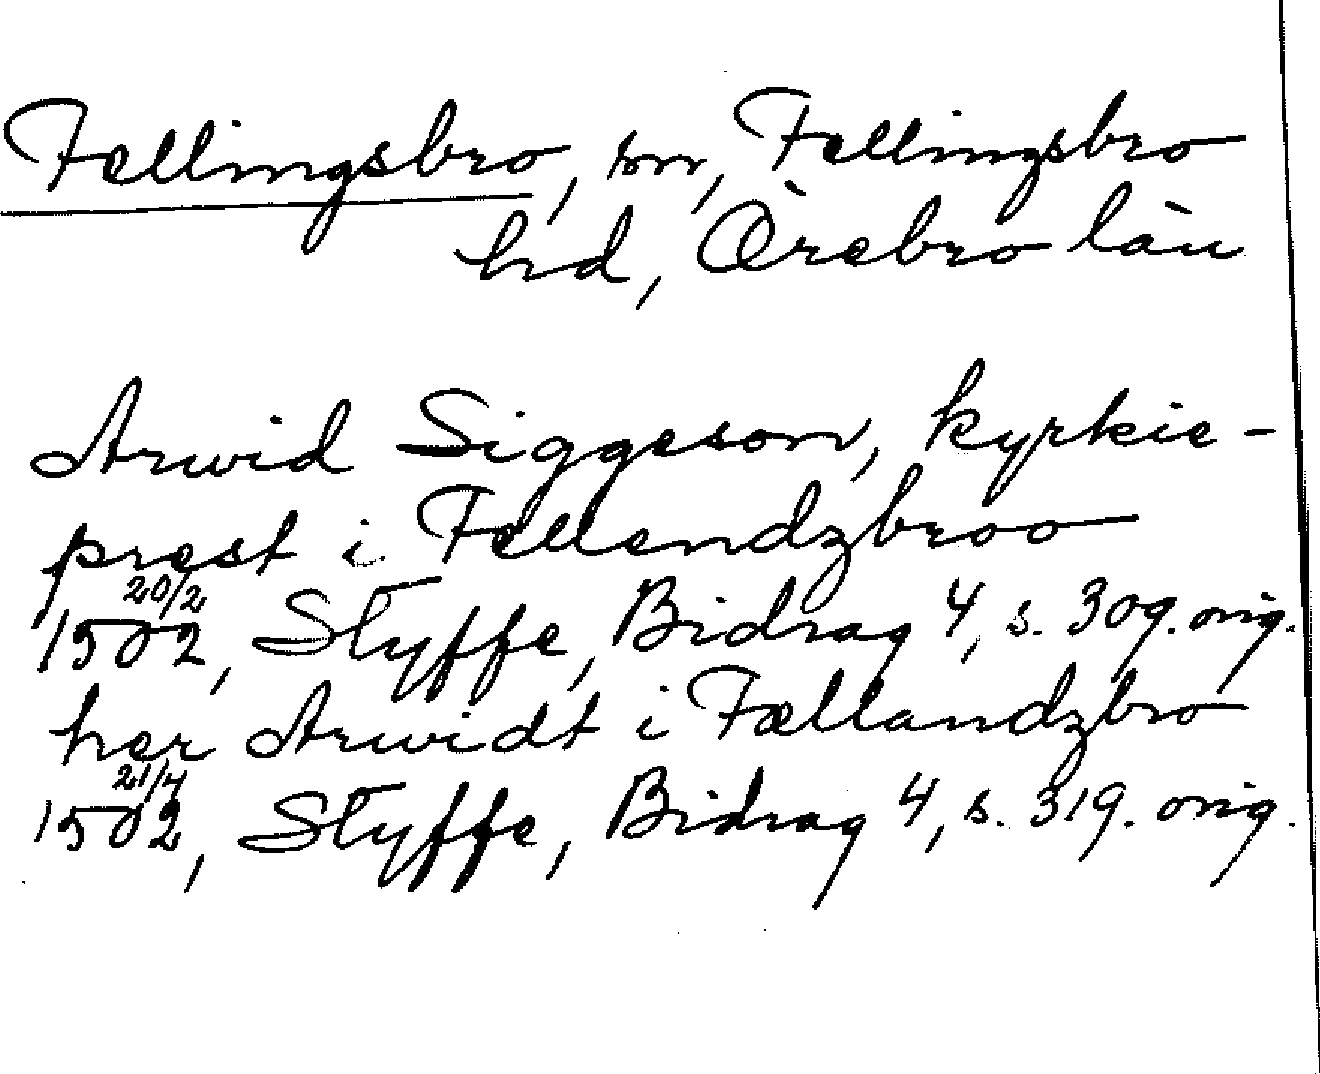 Fellingsbro, sn, Fellingsbro
hd, Örebro län
Arwid Siggeson, kyrkie-
prest i Fellendzbroo
20/2
1502, Styffe, Bidrag 4, s. 309. orig.
her Arwidt i Fællandzbro
21/4
1502, Styffe, Bidrag 4, s. 319. orig.